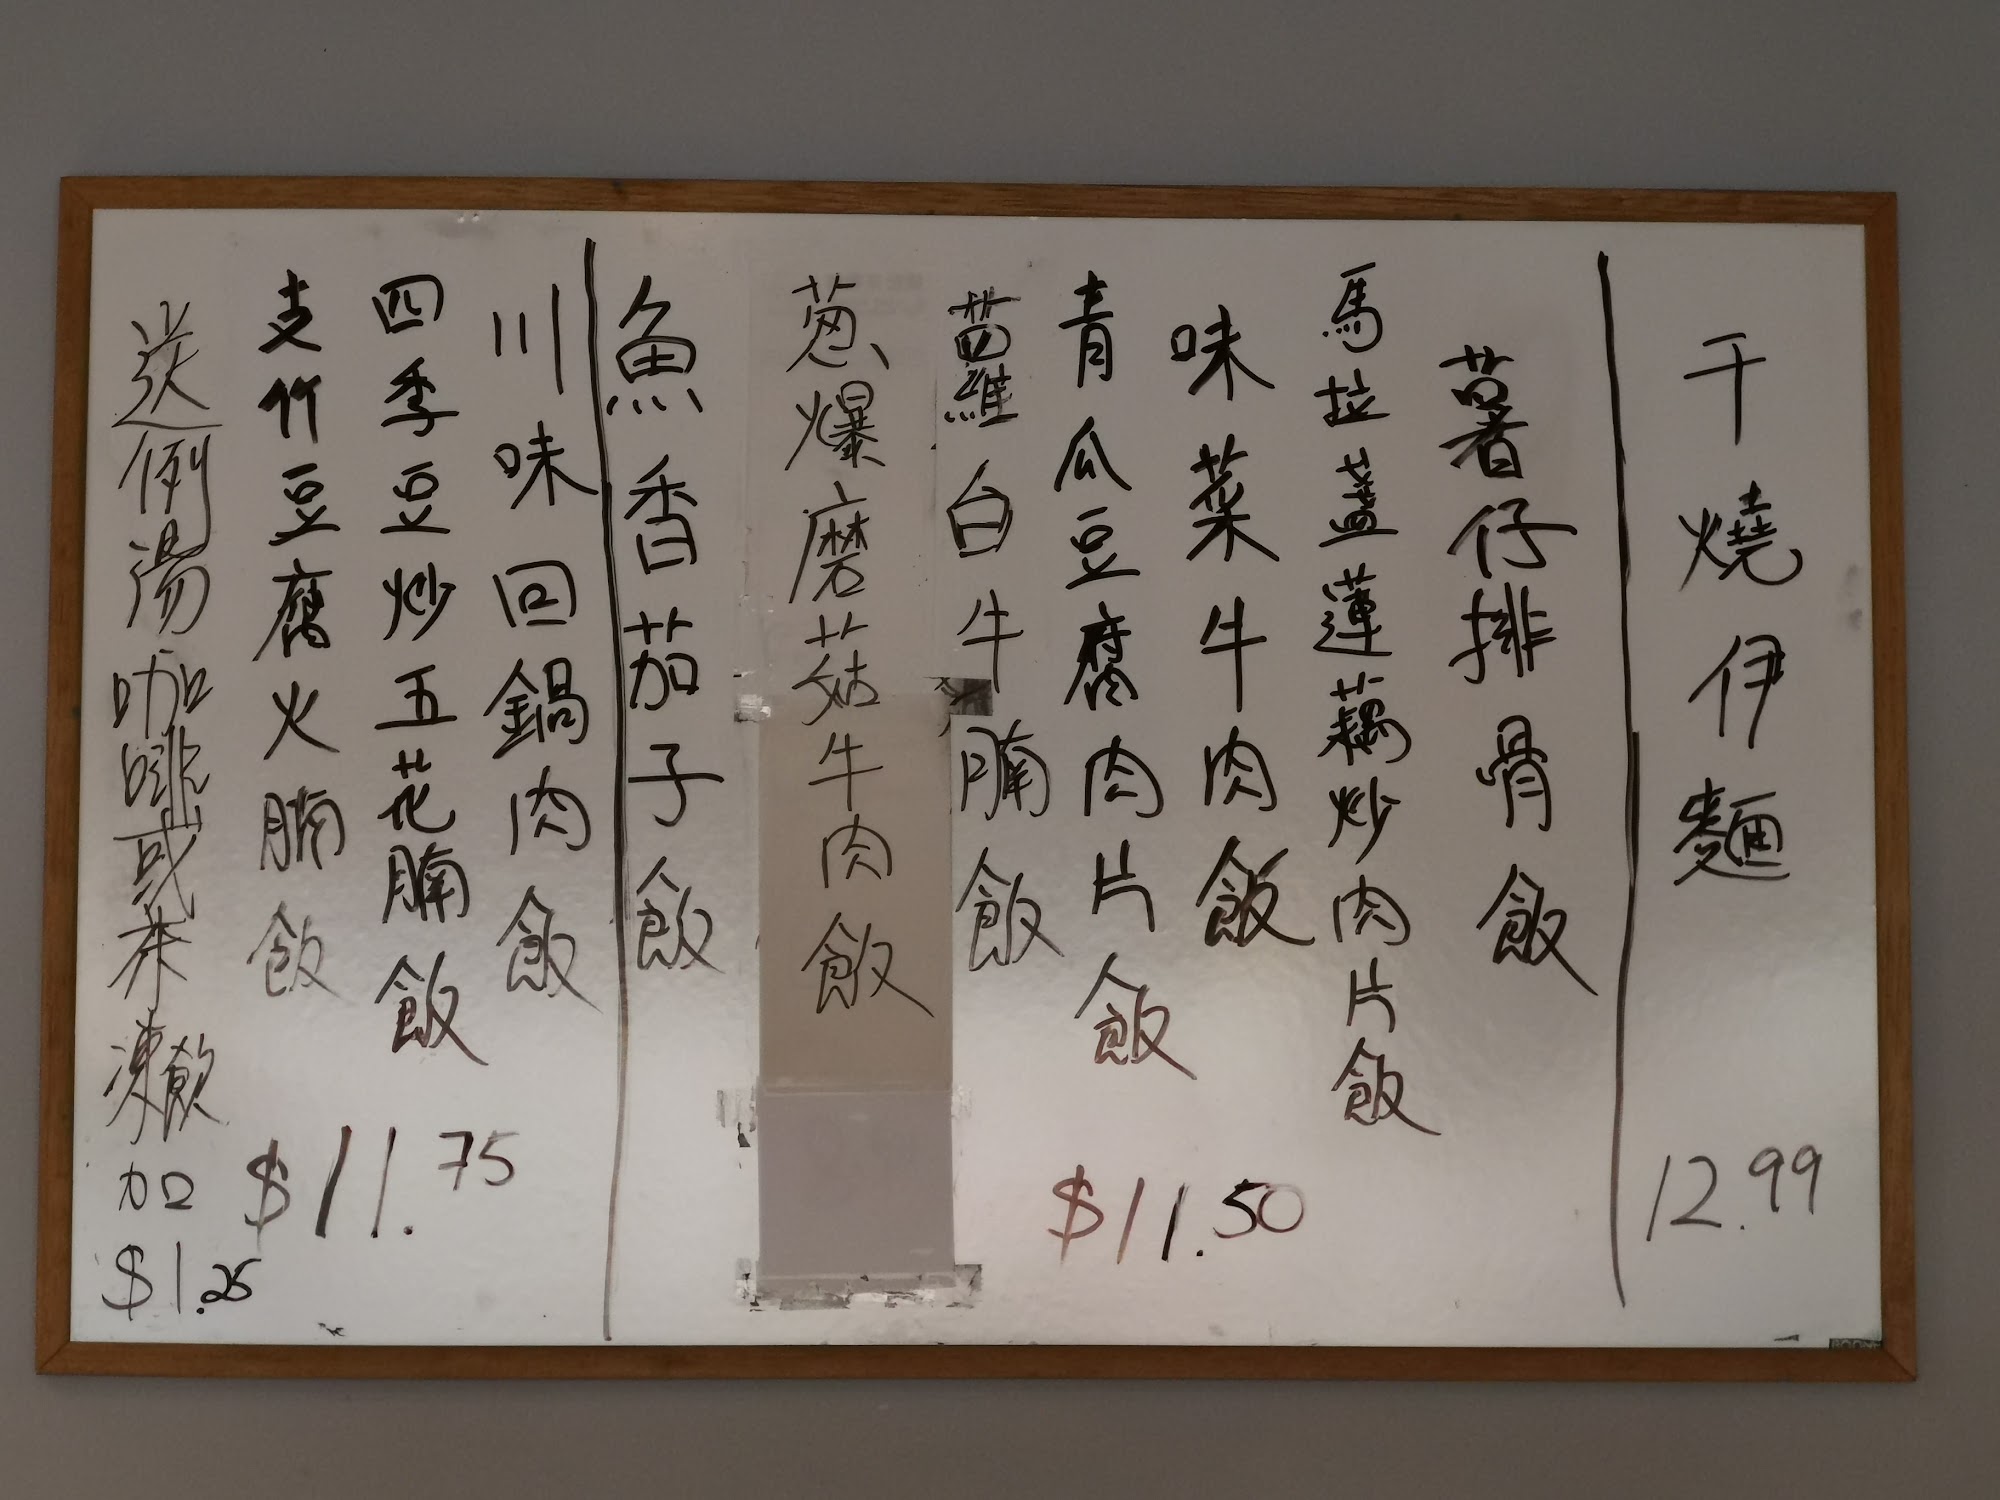 干燒伊麵
12.99
薯仔排骨飯
馬拉盞蓮藕炒肉片飯
味菜牛肉飯
青瓜豆腐肉片飯
蘿白牛腩飯
葱爆磨菇牛肉飯
魚香茄子飯
$11.50
川味回鍋肉飯
四季豆炒五花腩飯
支竹豆腐火腩飯
$11.75
送例湯咖啡或茶凍飲加
$1.25